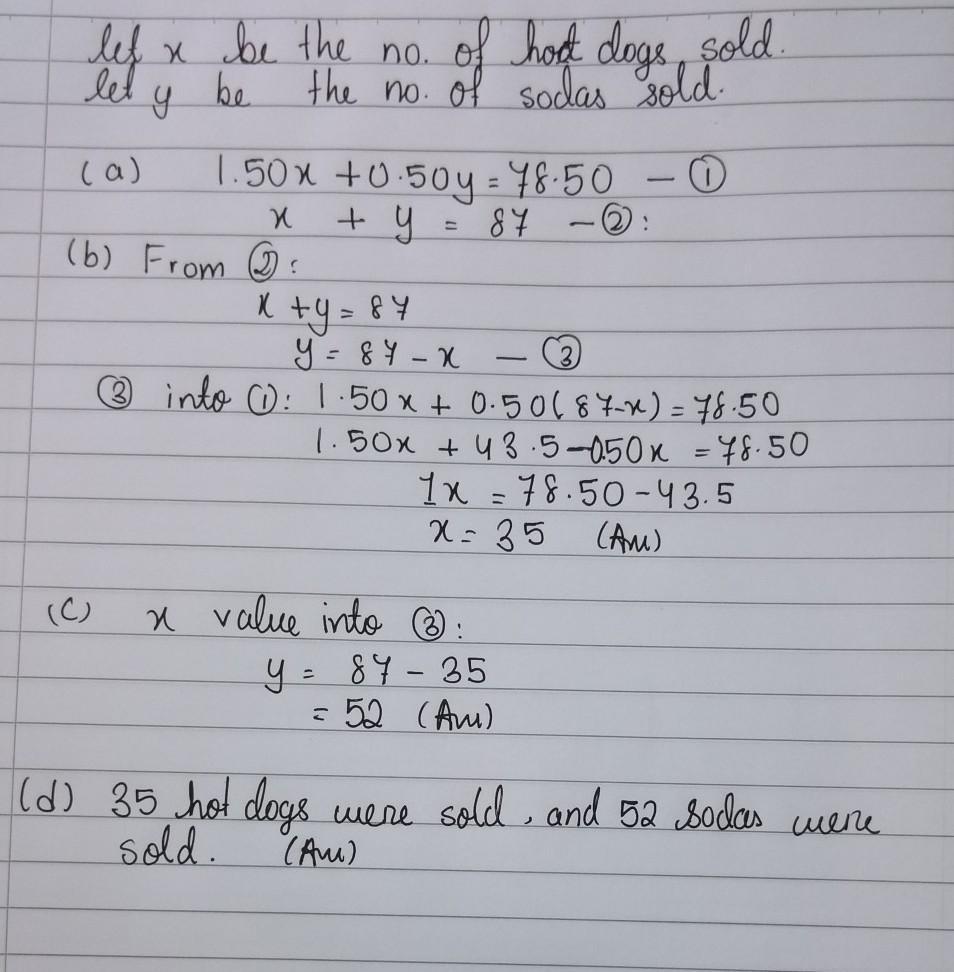 let x be the no. of hot dogs sold.
let y be the no. of sodas sold.
(a) 1.50x + 0.50y = 78.50 – ①
x + y = 87 – ②:
(b) From ②:
x + y = 87
y = 87 – x – ③
③ into ①: 1.50x + 0.50(87-x) = 78.50
1.50x + 43.5 – 0.50x = 78.50
1x = 78.50 – 43.5
x = 35 (Ans)
(c) x value into ③:
y = 87 – 35
= 52 (Ans)
(d) 35 hot dogs were sold, and 52 sodas were
sold. (Ans)